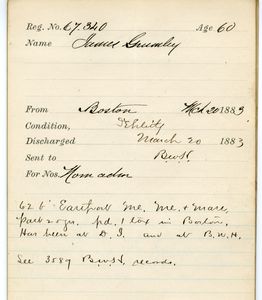 Reg. No. 67.340 Age 60
Name James
From Boston Mch 20 1883
Condition, Debility
Discharged March 20 1883
Sent to B.W.H.
For Nos. Hom adm
62 b Eastport Me. Me. & Mare,
Past 20 yrs. pd. 1 tax in Boston.
Has been at D. I. and at B. W. H.
See 3589 B.W.H. records.